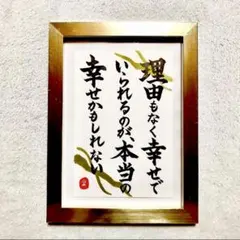 理由もなく幸せで
いられるのが、本当の
幸せかもしれない